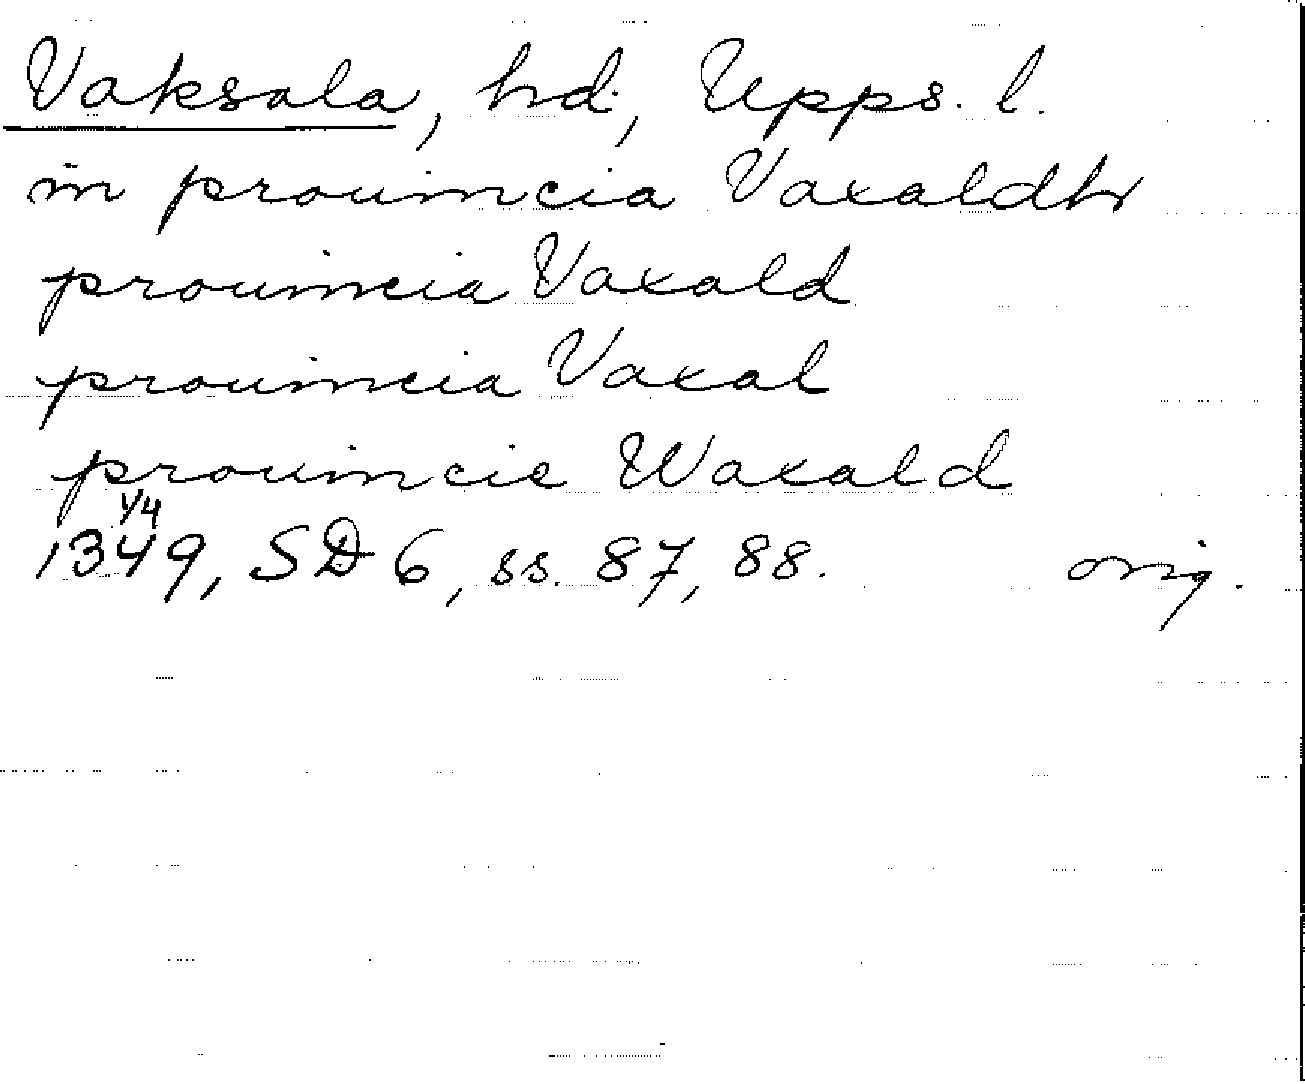 Vaksala, hd, Upps. l.
in prouincia Vaxaldhr
prouincia Vaxald
prouincia Vaxal
prouincie Waxald
1/4
1349, SD 6, ss. 87, 88. orig.